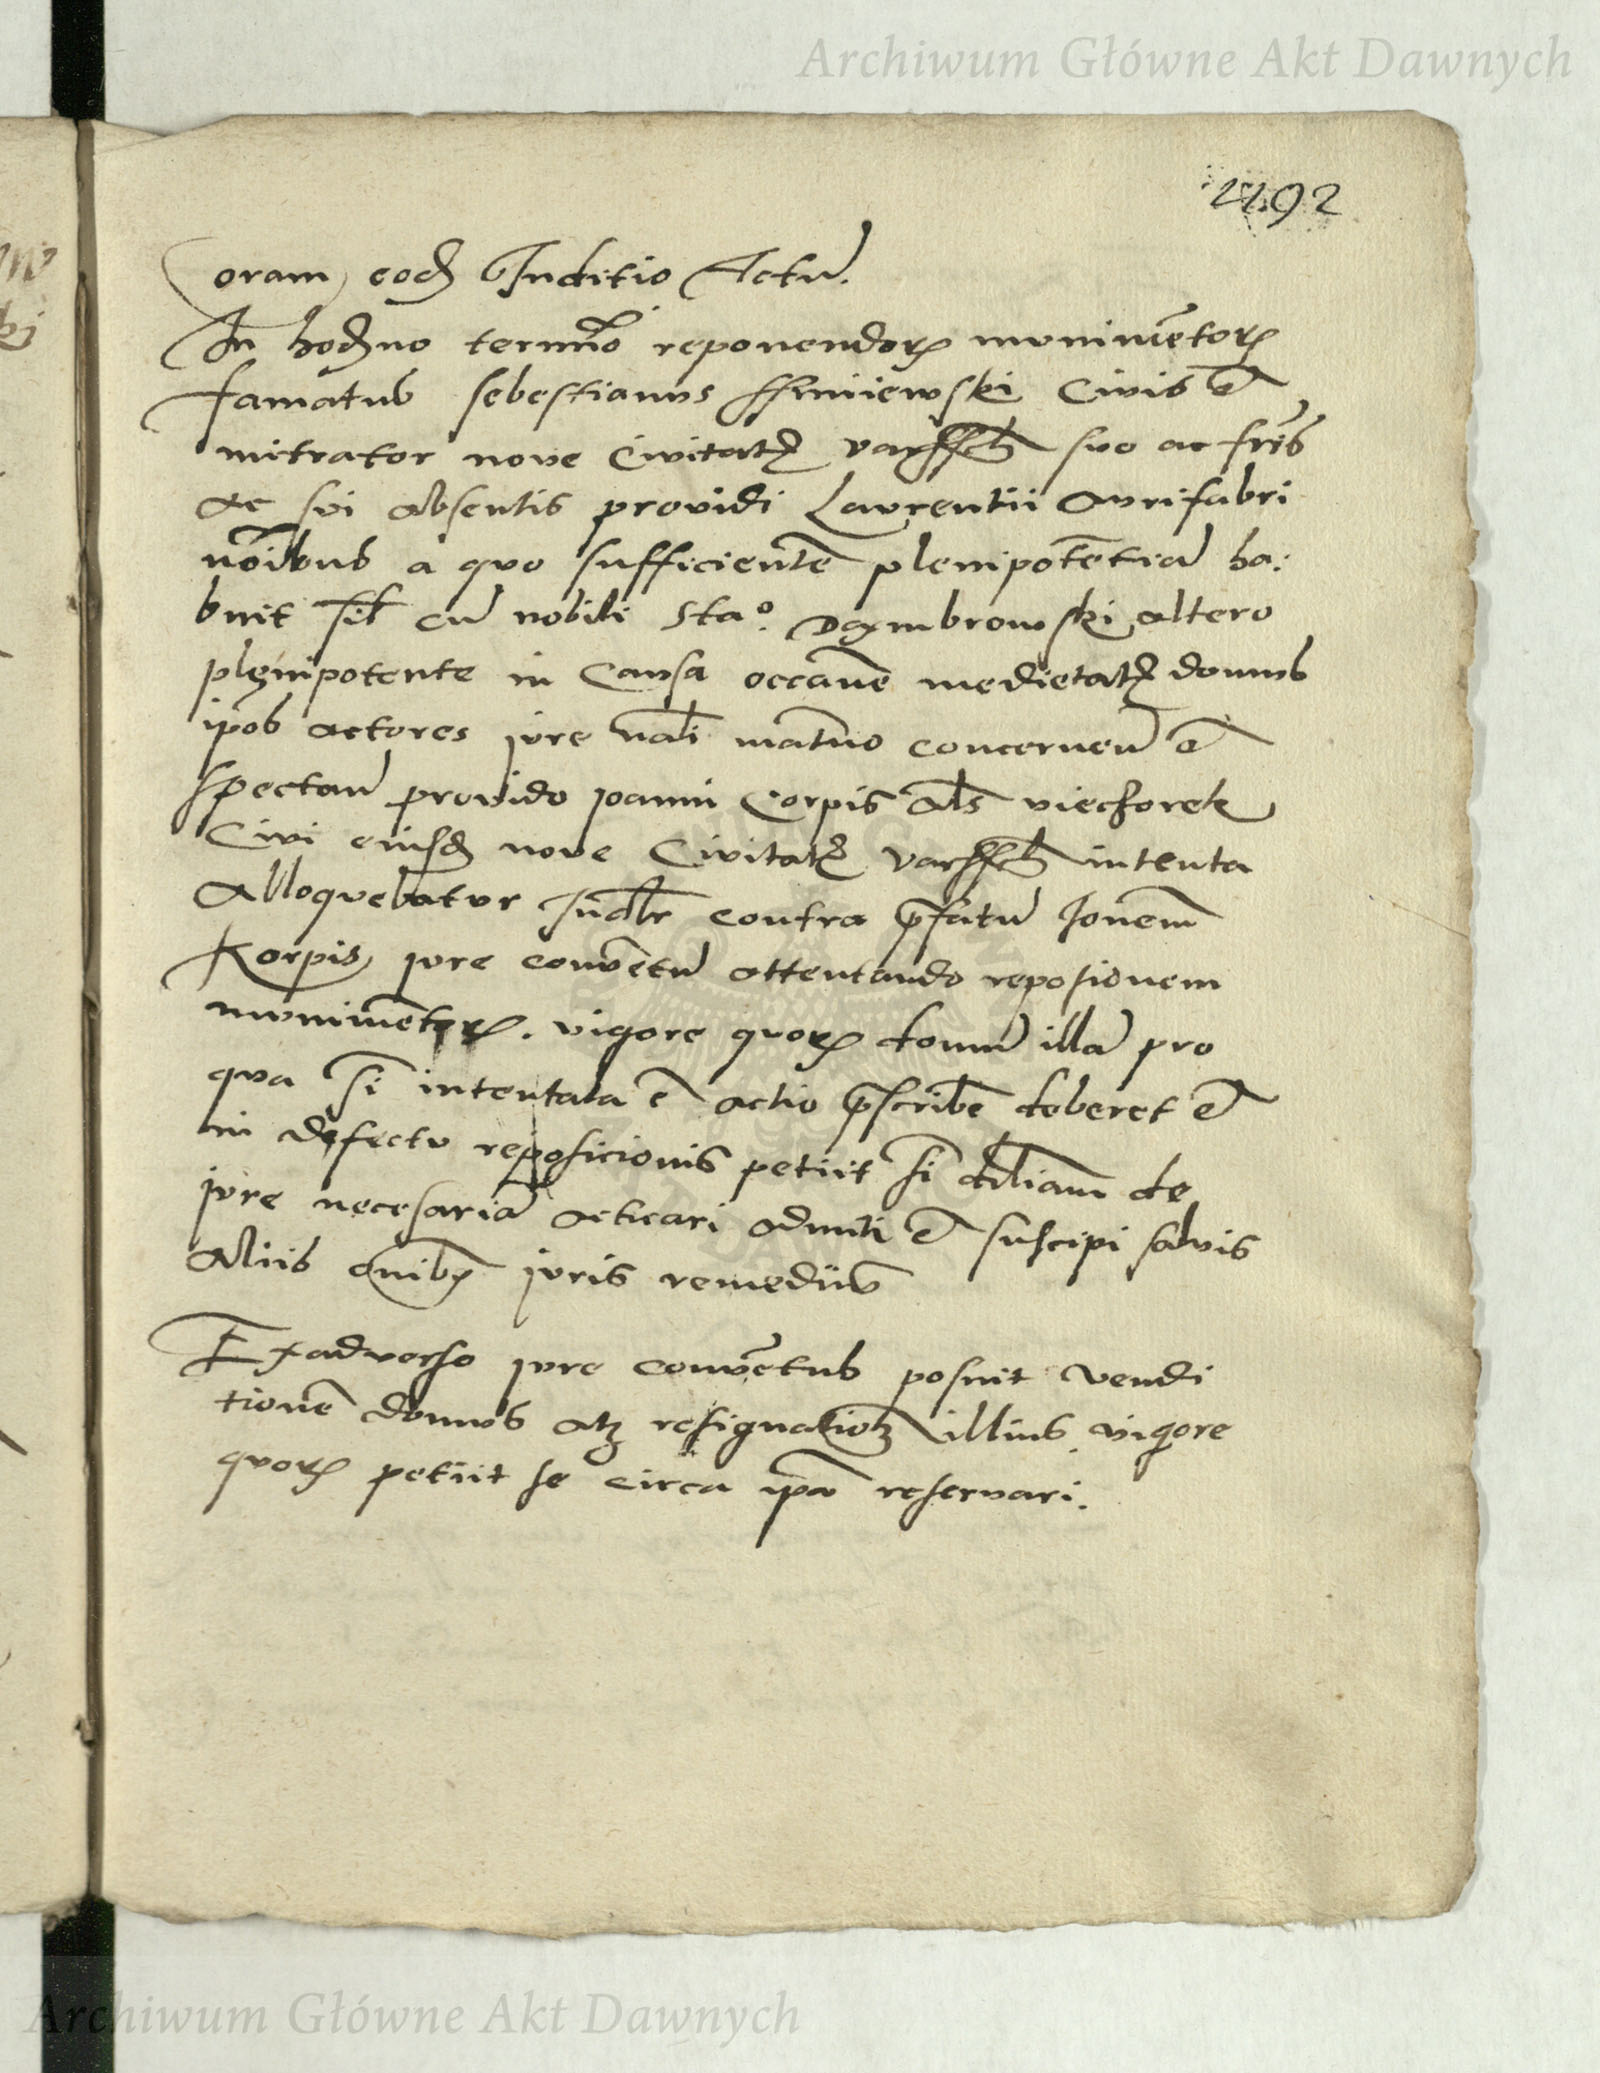 Archiwum Główne Akt Dawnych
Coram eod Iuditio Actu.
In hodno termino reponendor munimetor
famatus sebestianus Civis et
ministrator nove Civitatis varssch suo ac fris
ac sui absentis providi Laurentii Aurifabri
noibus a quo sufficiente plenipotetia ha:
buit sil cu nobili Sta°. Dambrowski altero
plenipotente in Causa occane medietatis domus
ipos actores jure nali matno concernen et
spectan provido joanni Corpis als viechorek
Civi eiusd nove Civitatis varssch intenta
Alloquebatur contra pfatu Jonem
Korpis jure conventu attentando reposionem
munimetor. vigore quor domu illa pro
qua si intentata e actio pscribe deberet et
in defectu reposicionis petiit si diliam de
jure necesaria acticari admiti et suscipi salvis
Aliis onibus juris remediis
Ex adverso jure conventus posuit vendi
tione domus atq resignatione illius vigore
quor petiit se circa ipa reservari.
Archiwum Główne Akt Dawnych